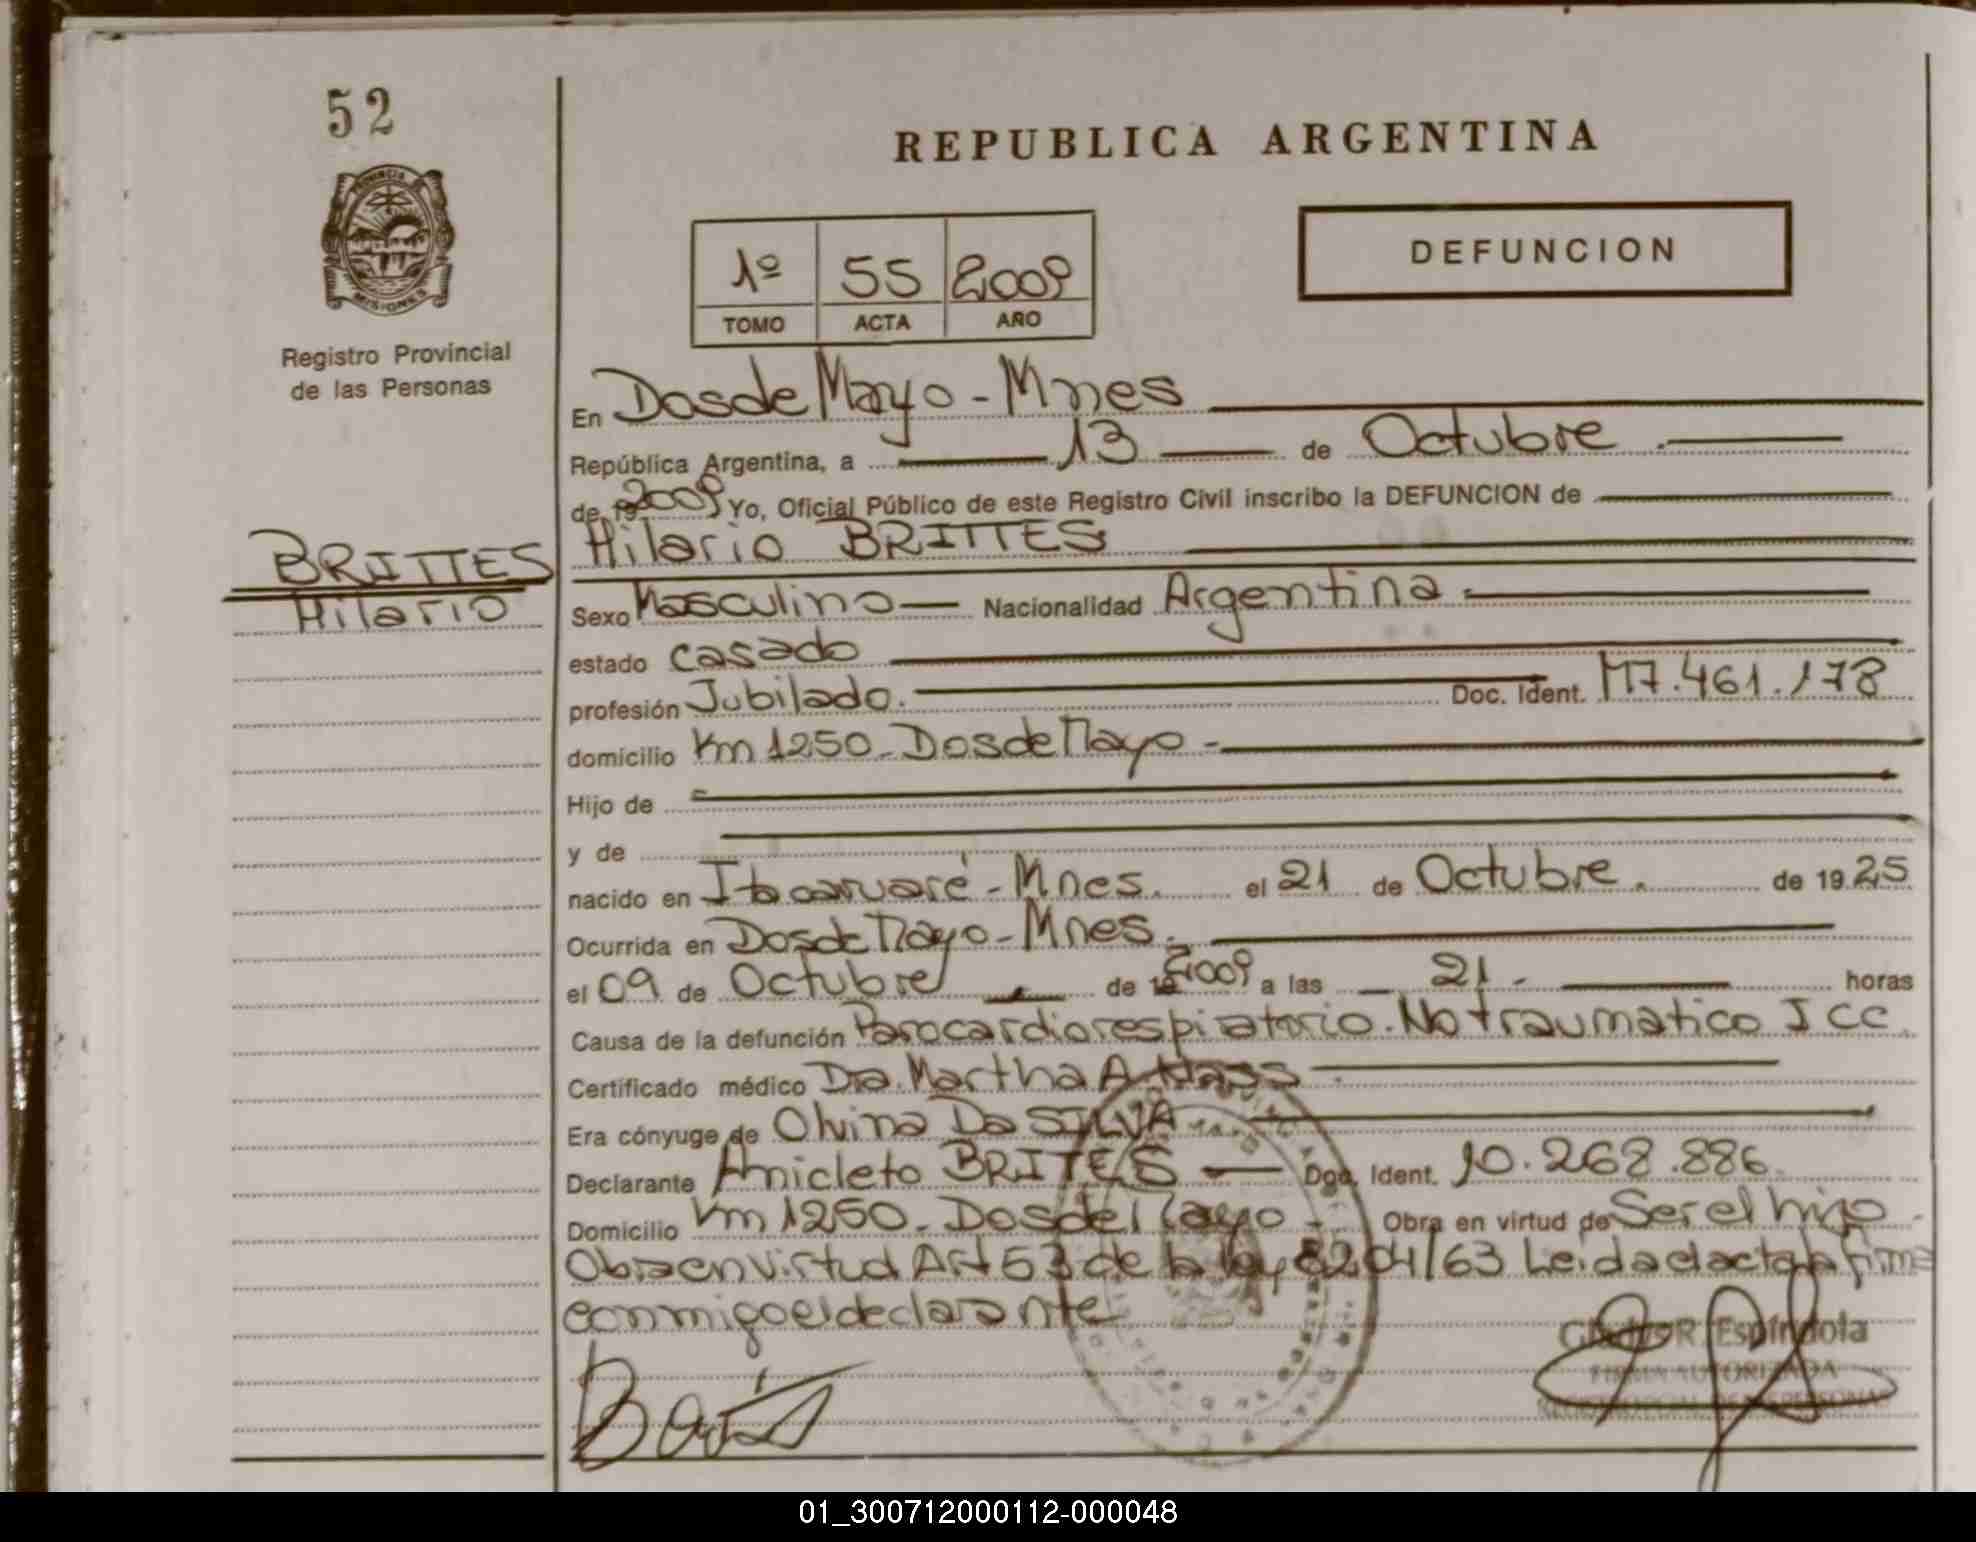 52
PROVINCIA DE
MISIONES
Registro Provincial
de las Personas
REPUBLICA ARGENTINA
DEFUNCION
1º 55 2009
TOMO ACTA AÑO
En Dos de Mayo - Mnes
República Argentina, a 13 de Octubre
de 19 2009 Yo, Oficial Público de este Registro Civil inscribo la DEFUNCION de
BRITTES
Hilario
Hilario BRITTES
Sexo Masculino Nacionalidad Argentina
estado casado
profesión Jubilado. Doc. Ident. M7.461.178
domicilio Km 1250 - Dos de Mayo -
Hijo de
y de
nacido en Itacaruaré - Mnes. el 21 de Octubre. de 19 25
Ocurrida en Dos de Mayo - Mnes.
el 09 de Octubre de 19 2009 a las 21 - horas
Causa de la defunción Parocardiorespiratorio. No traumatico ICC
Certificado médico Dra. Martha A.
Era cónyuge de Olvina Da SILVA
Declarante Anicleto BRITES Doc. Ident. 10.268.886.
Domicilio Km 1250 - Dos de Mayo - Obra en virtud de Ser el hijo -
Obra en virtud Art 53 de la ley 8204/63 Leida el acta la firma
conmigo el declarante
R. Espíndola
FIRMA AUTORIZADA
01_300712000112-000048